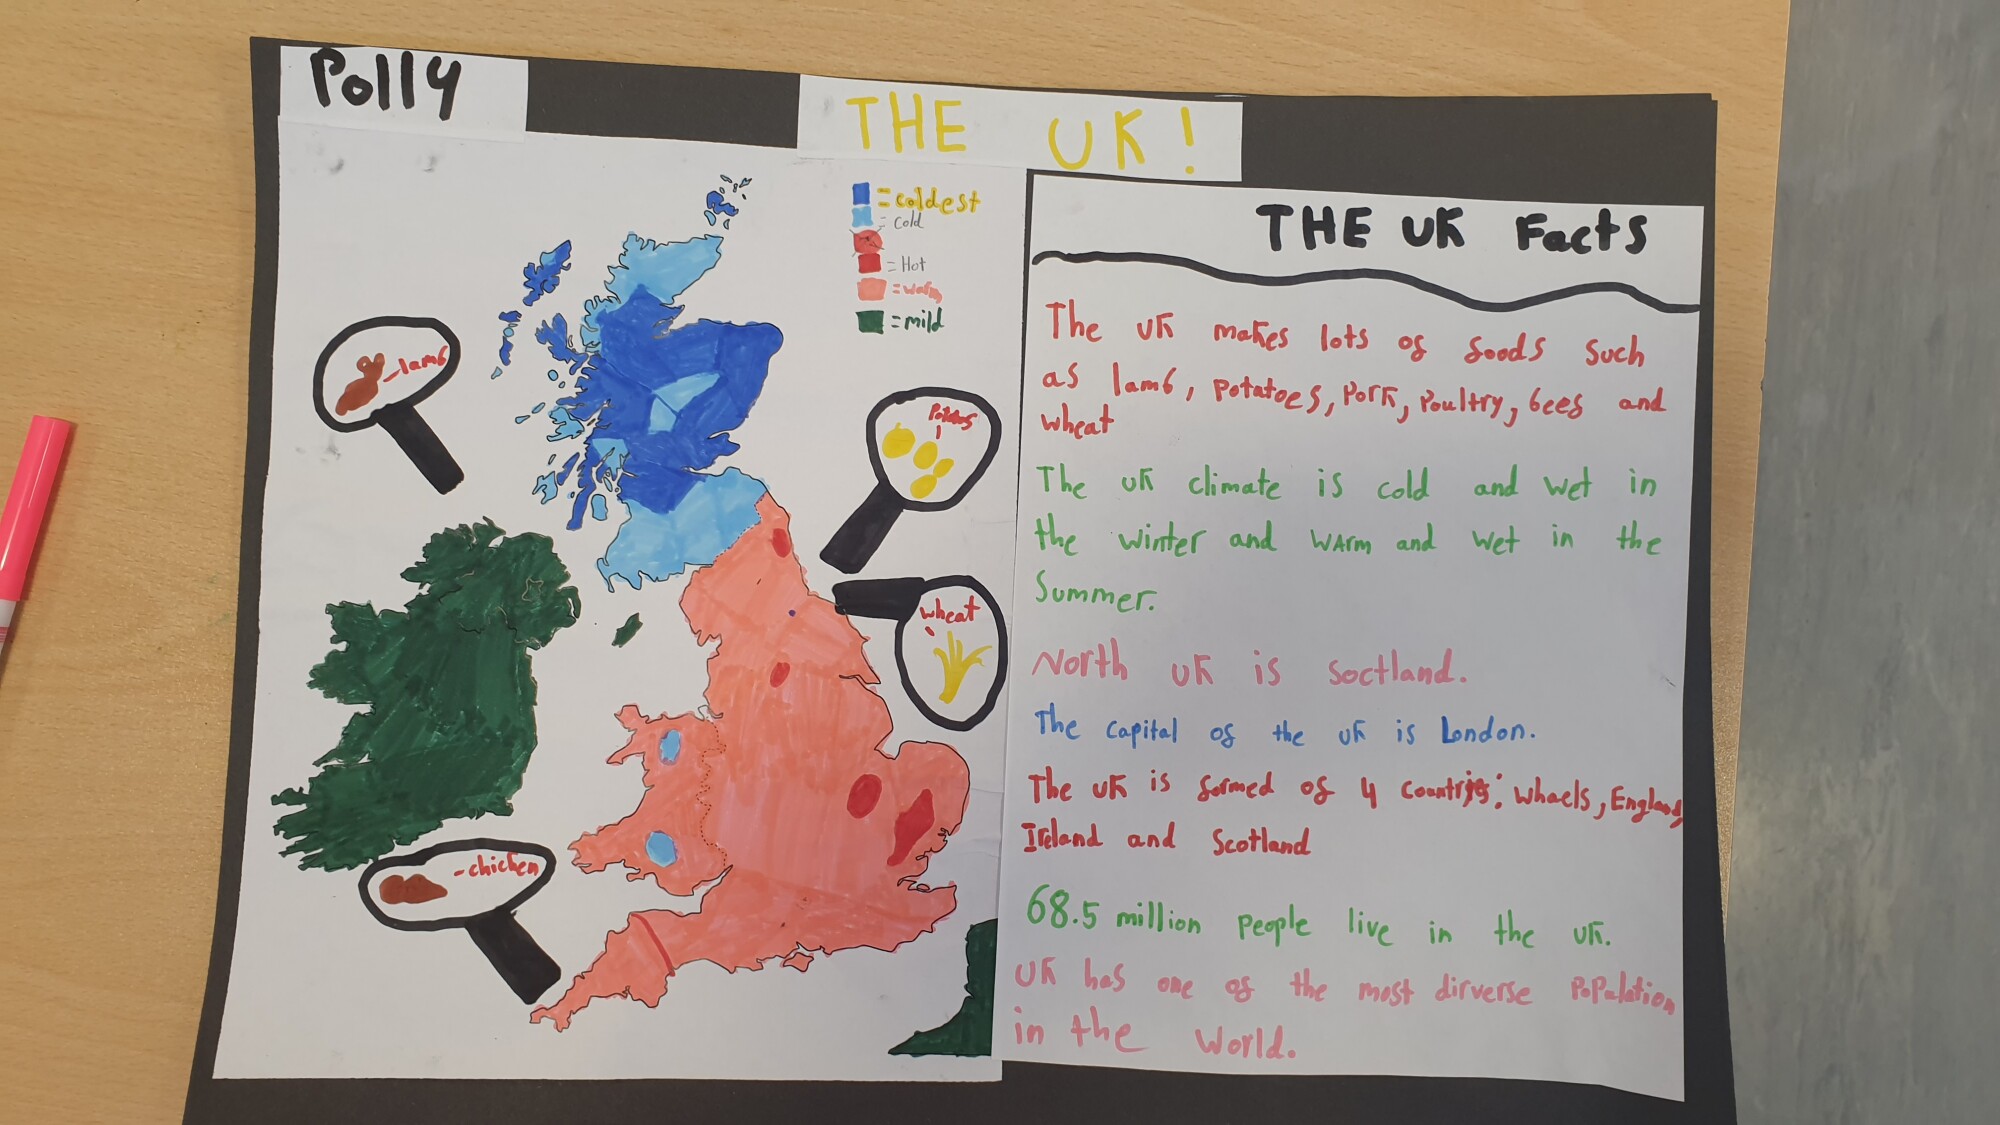 Polly
THE UK!
= coldest
= cold
= Hot
= warm
= mild
lamb
Potatos
wheat
chicken
THE UK Facts
The UK makes lots of foods such
as lamb, potatoes, Pork, Poultry, beef and
wheat
The UK climate is cold and wet in
the winter and WArm and wet in the
Summer.
North UK is Soctland.
The capital of the UK is London.
The UK is formed of 4 countries: whaels, England,
Ireland and Scotland
68.5 million people live in the UK.
UK has one of the most dirverse PoPulation
in the World.